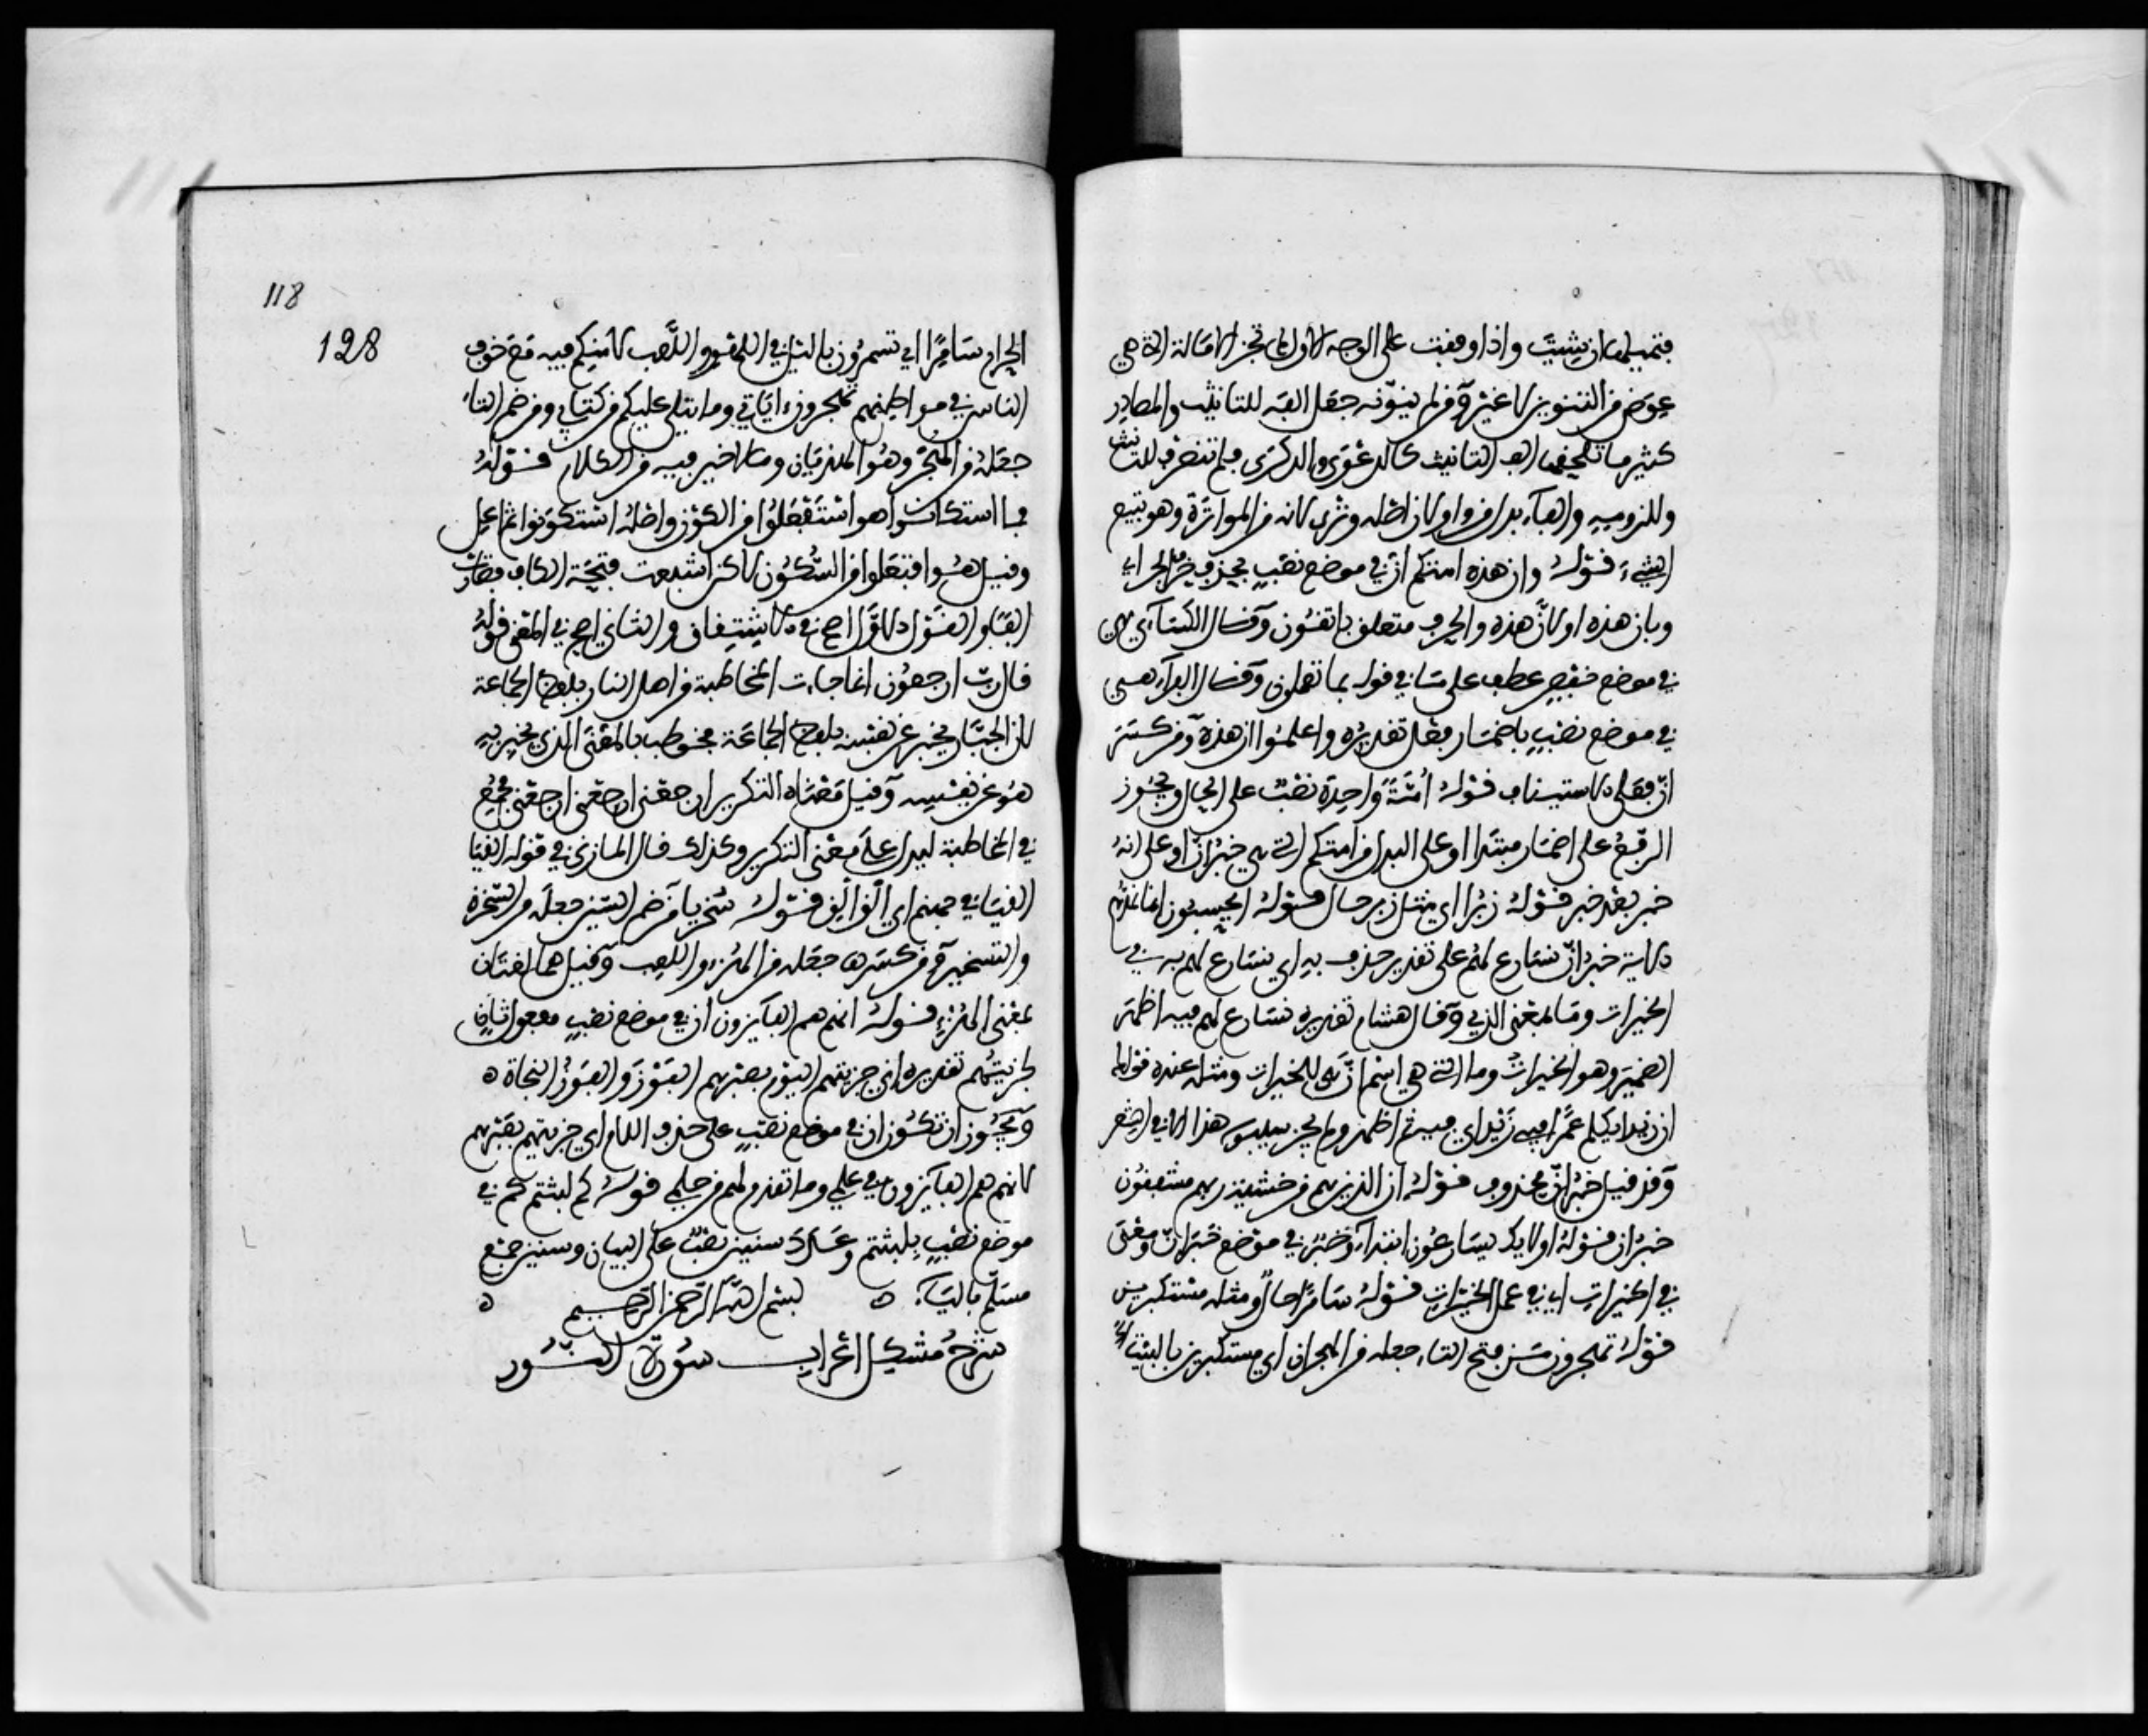 فتميلها ان شئت واذا وقفت على الوجه الاول لم تجز الامالة التي هي
عوض من التنوين لا غير ومن لم ينونه جعل الفه للتانيث والمصادر
كثير ما تلحقها الف التانيث كالدعوى والذكرى فلم تنصرف للتانيث
وللزومه والتاء بدل من واو لان اصله وترى لانه من المواترة وهو تتبع
الشيء قوله وان هذه امتكم ان في موضع نصب بحذف حرف الجر اي
وبان هذه او لان هذه والحرف متعلق باتقون وقال الكساءي هي
في موضع خفض عطف على ما في قوله بما تعملون وقال الفراء هي
في موضع نصب باضمار فعل تقديره واعلموا ان هذه ومن كسر
ان فعلى الاستيناف قوله امة واحدة نصب على الحال ويجوز
الرفع على اضمار مبتدا او على البدل من امتكم التي هي خبر ان او على انه
خبر بعد خبر قوله زبرا اي مثل زبر حال قوله ايحسبون انما نمدهم
الاية خبر ان نسارع لهم على تقدير حذف به اي نسارع لهم به في
الخيرات وما بمعنى الذي وقال هشام تقديره نسارع لهم فيه اظهر
الضمير وهو الخيرات وما التي هي اسم ان هي للخيرات ومثله عنده قولك
ان زيدا يكلم عمرا فيه زيد اي فيه ثم اظهر ولم يجز سيبويه هذا الا في الشعر
وقد قيل خبر ان محذوف قوله ان الذين هم من خشية ربهم مشفقون
خبر ان قوله اولايك يسارعون ابتداء وخبر في موضع خبر ان ومعنى
في الخيرات اي في عمل الخيرات قوله سامرا حال ومثله مستكبرين
قوله تهجرون من فتح التاء جعله من الهجران اي مستكبرين بالبيت
118
128
الحرام سامرا اي تسمرون بالليل في اللهو واللعب لامنكم فيه مع خوف
الناس في مواطنهم تهجرون ءاياتي وما يتلى عليكم من كتابي ومن ضم التاء
جعله من الهجر وهو الهذيان وما لا خير فيه من الكلام قوله
فما استكانوا هو استفعلوا من الكون واصله استكونوا ثم اعل
وقيل هو افتعلوا من السكون لاكن اشبعت فتحة الكاف فصارت
الفا والقول الاول اصح في الاشتقاق والثاني اصح في المعنى قوله
قال رب ارجعون انما جاءت المخاطبة من اهل النار بلفظ الجماعة
لان الجبار يخبر عن نفسه بلفظ الجماعة فخوطب بالمعنى الذي يخبر به
هو عن نفسه وقيل معناه التكرير ارجعني ارجعني ارجعني فجمع
في المخاطبة ليدل على معنى التكرير وكذلك قال المازني في قوله القيا
القيا في جهنم اي الق الق قوله سخريا من ضم السين جعله من السخرة
والتسخير ومن كسرها جعله من الهزء واللعب وقيل هما لغتان
بمعنى الهزء قوله انهم هم الفايزون ان في موضع نصب مفعول ثان
لجزيتهم تقديره اني جزيتهم اليوم بصبرهم الفوز والفوز النجاة ه
ويجوز ان تكون ان في موضع نصب على حذف اللام اي جزيتهم بصبرهم
لانهم هم الفايزون في علمي وما تقدم لهم من حكمي قوله كم لبثتم كم في
موضع نصب بلبثتم وعدد سنين نصب على البيان وسنين جمع
مسلم بالياء ه بسم الله الرحمن الرحيم ه
شرح مشكل اعراب سورة النور